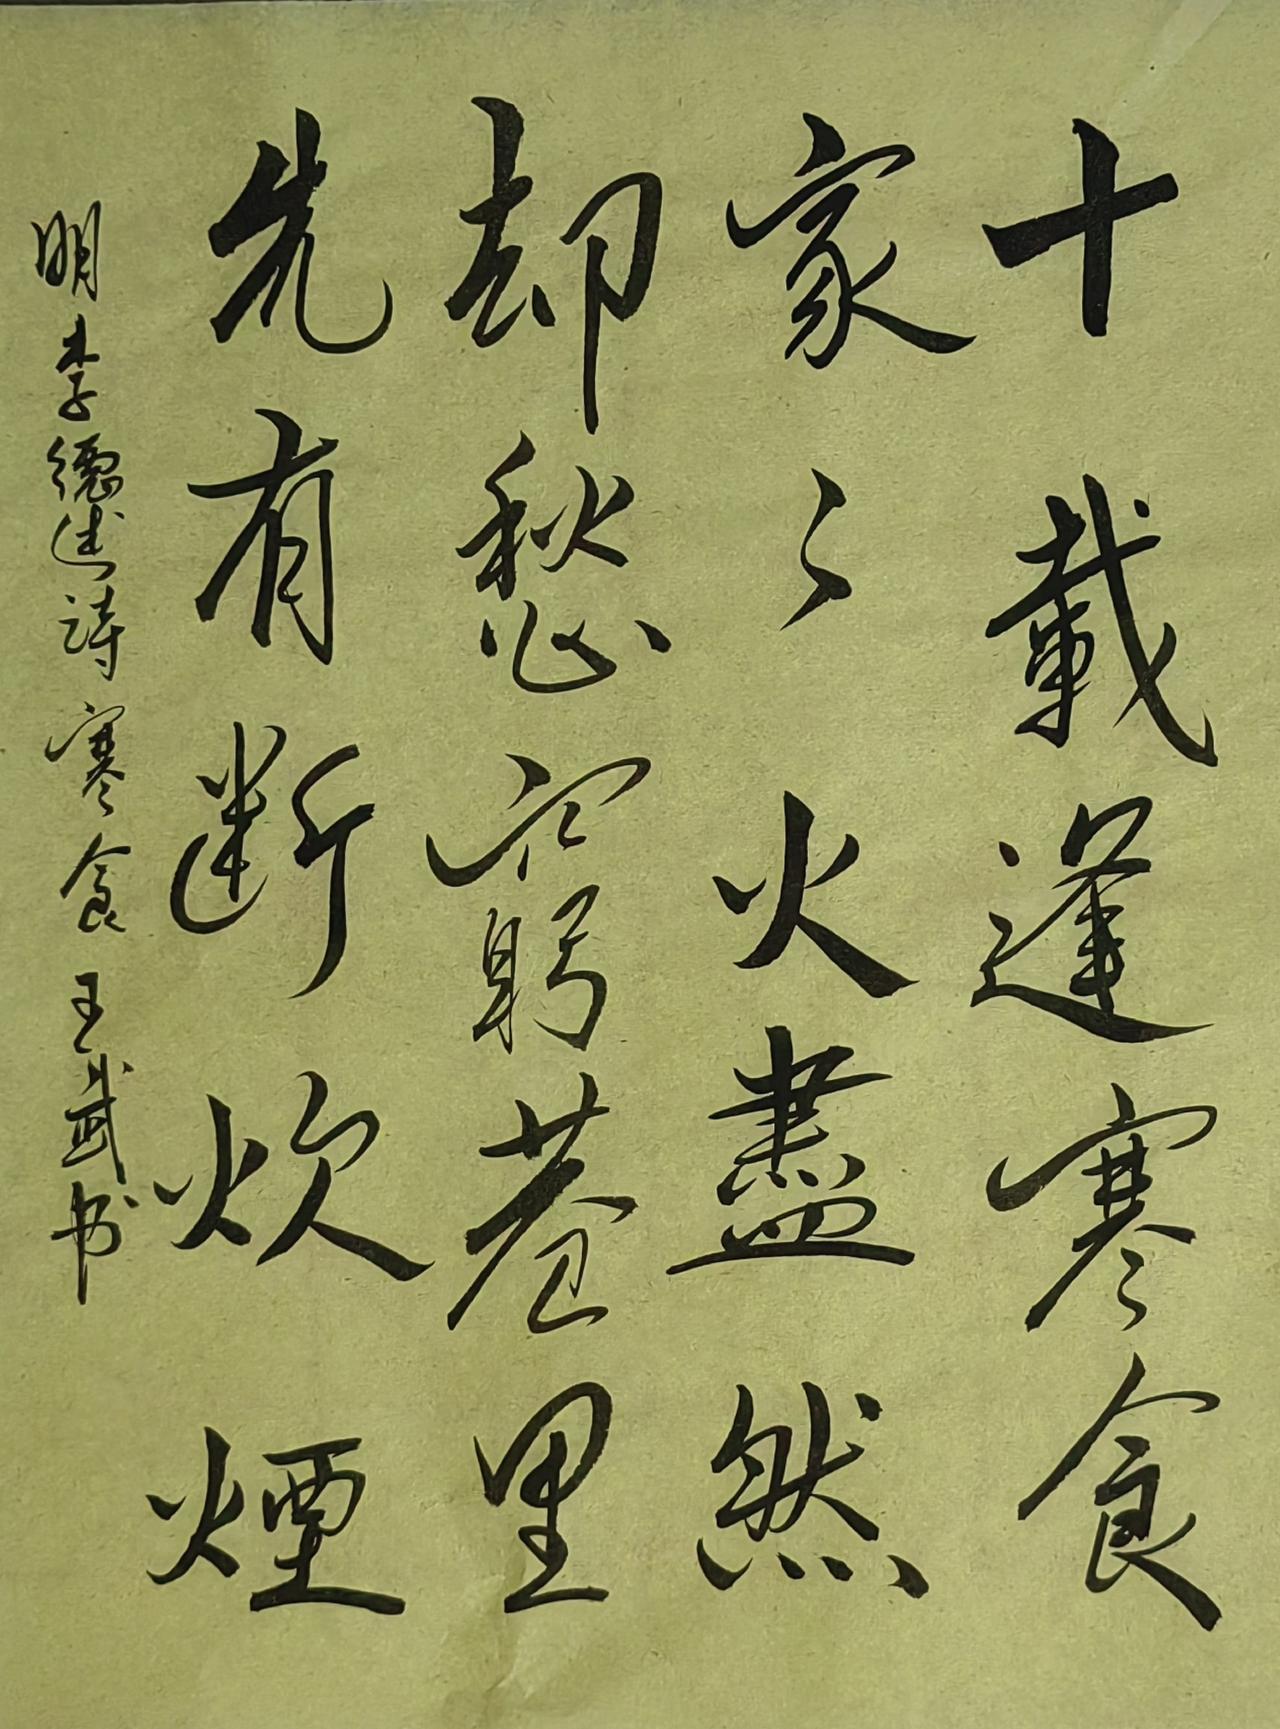 十載逢寒食
家々火盡然
却愁窮巷里
先有断炊煙
明李德詩寒食王武书